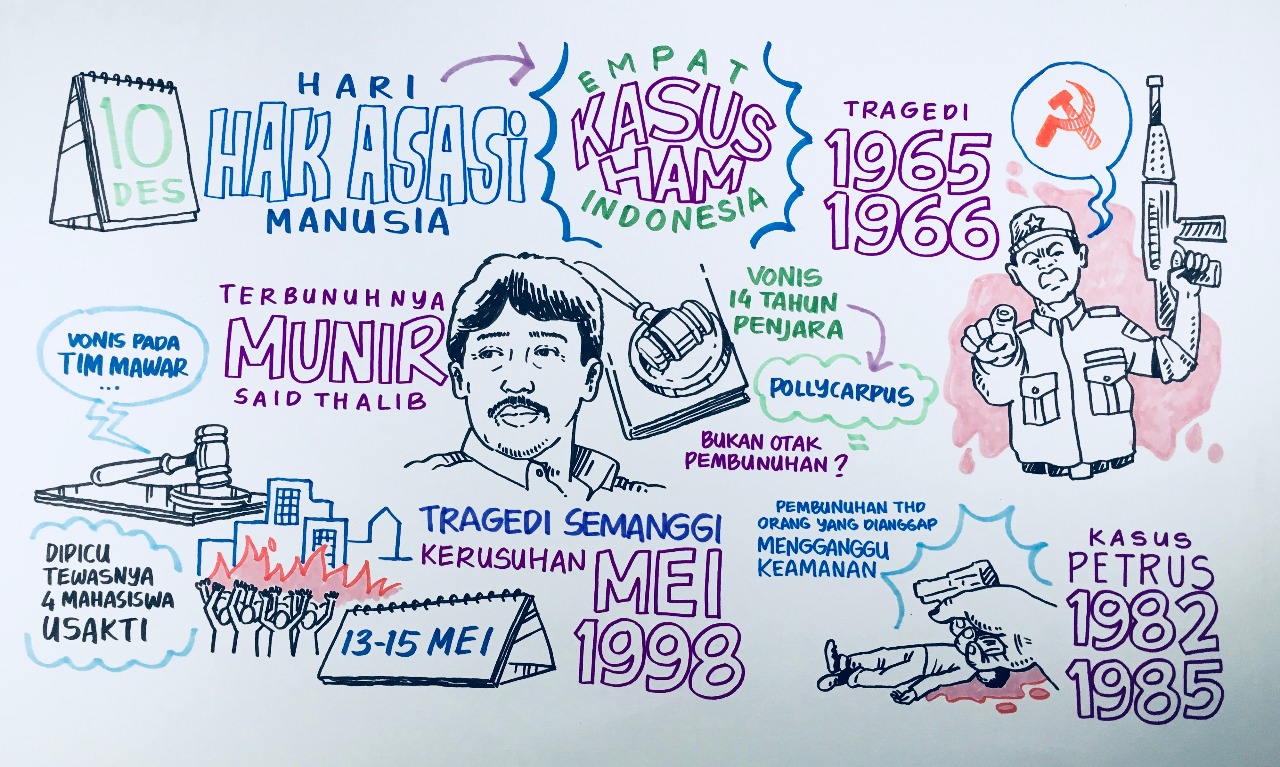 10
DES
HARI
HAK ASASI
MANUSIA
EMPAT
KASUS
HAM
INDONESIA
TRAGEDI
1965
1966
TERBUNUHNYA
MUNIR
SAID THALIB
VONIS
14 TAHUN
PENJARA
POLLYCARPUS
=
BUKAN OTAK
PEMBUNUHAN?
VONIS PADA
TIM MAWAR
...
DIPICU
TEWASNYA
4 MAHASISWA
USAKTI
TRAGEDI SEMANGGI
KERUSUHAN
MEI
1998
13-15 MEI
PEMBUNUHAN THD
ORANG YANG DIANGGAP
MENGGANGGU
KEAMANAN
KASUS
PETRUS
1982
1985